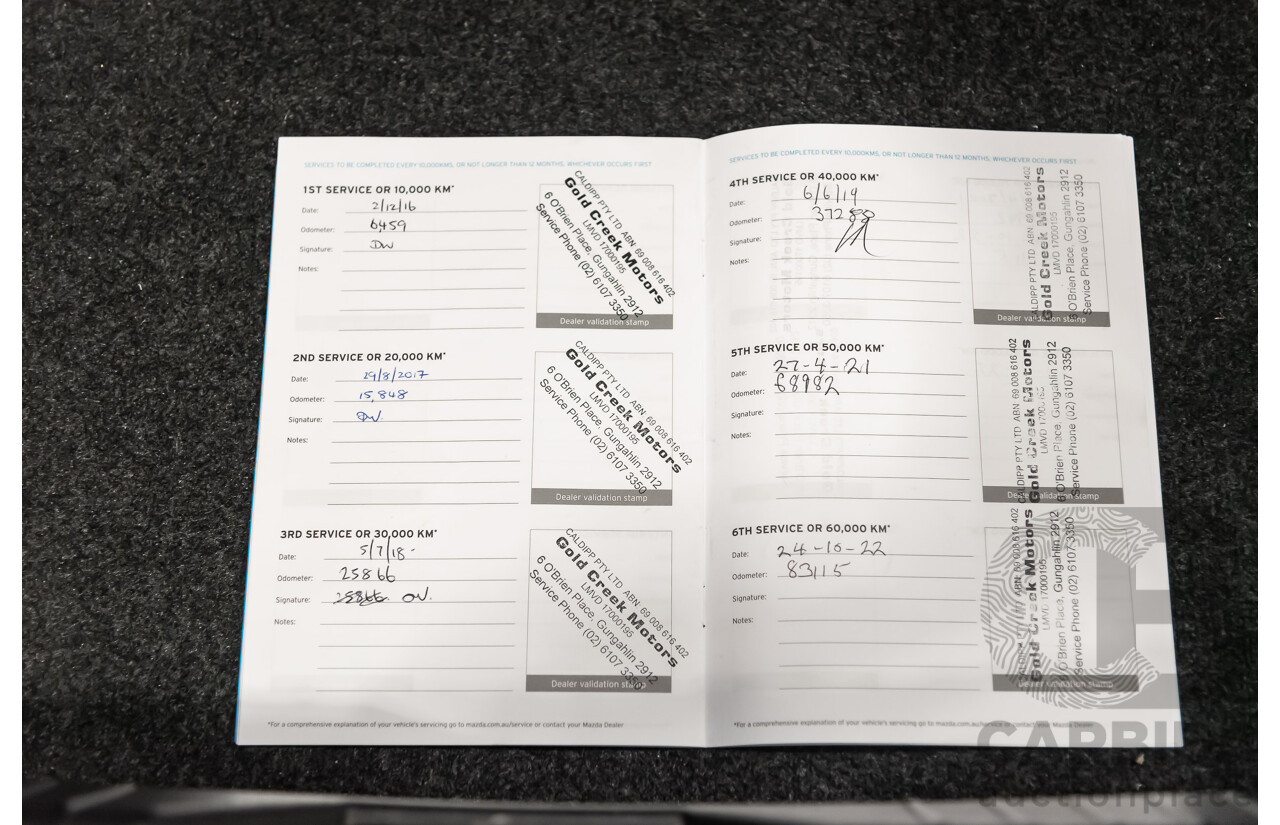 SERVICES TO BE COMPLETED EVERY 10,000KMS, OR NOT LONGER THAN 12 MONTHS, WHICHEVER OCCURS FIRST
1ST SERVICE OR 10,000 KM*
Date: 2/12/16
Odometer: 6459
Signature: DW
Notes:
CALDIPP PTY LTD ABN: 69 008 616 402
Gold Creek Motors
LMVD 17000195
6 O'Brien Place, Gungahlin 2912
Service Phone (02) 6107 3350
Dealer validation stamp
2ND SERVICE OR 20,000 KM*
Date: 29/8/2017
Odometer: 15,848
Signature: DW.
Notes:
CALDIPP PTY LTD ABN: 69 008 616 402
Gold Creek Motors
LMVD 17000195
6 O'Brien Place, Gungahlin 2912
Service Phone (02) 6107 3350
Dealer validation stamp
3RD SERVICE OR 30,000 KM*
Date: 5/7/18-
Odometer: 25866
Signature: 25866
Notes:
CALDIPP PTY LTD ABN: 69 008 616 402
Gold Creek Motors
LMVD 17000195
6 O'Brien Place, Gungahlin 2912
Service Phone (02) 6107 3350
Dealer validation stamp
*For a comprehensive explanation of your vehicle's servicing go to mazda.com.au/service or contact your Mazda Dealer
SERVICES TO BE COMPLETED EVERY 10,000KMS, OR NOT LONGER THAN 12 MONTHS, WHICHEVER OCCURS FIRST
4TH SERVICE OR 40,000 KM*
Date: 6/6/19
Odometer: 37288
Signature:
Notes:
CALDIPP PTY LTD ABN: 69 008 616 402
Gold Creek Motors
LMVD 17000195
6 O'Brien Place, Gungahlin 2912
Service Phone (02) 6107 3350
Dealer validation stamp
5TH SERVICE OR 50,000 KM*
Date: 27-4-21
Odometer: 68982
Signature:
Notes:
CALDIPP PTY LTD ABN: 69 008 616 402
Gold Creek Motors
LMVD 17000195
6 O'Brien Place, Gungahlin 2912
Service Phone (02) 6107 3350
Dealer validation stamp
6TH SERVICE OR 60,000 KM*
Date: 24-10-22
Odometer: 83115
Signature:
Notes:
CALDIPP PTY LTD ABN: 69 008 616 402
Gold Creek Motors
LMVD 17000195
6 O'Brien Place, Gungahlin 2912
Service Phone (02) 6107 3350
Dealer validation stamp
*For a comprehensive explanation of your vehicle's servicing go to mazda.com.au/service or contact your Mazda Dealer